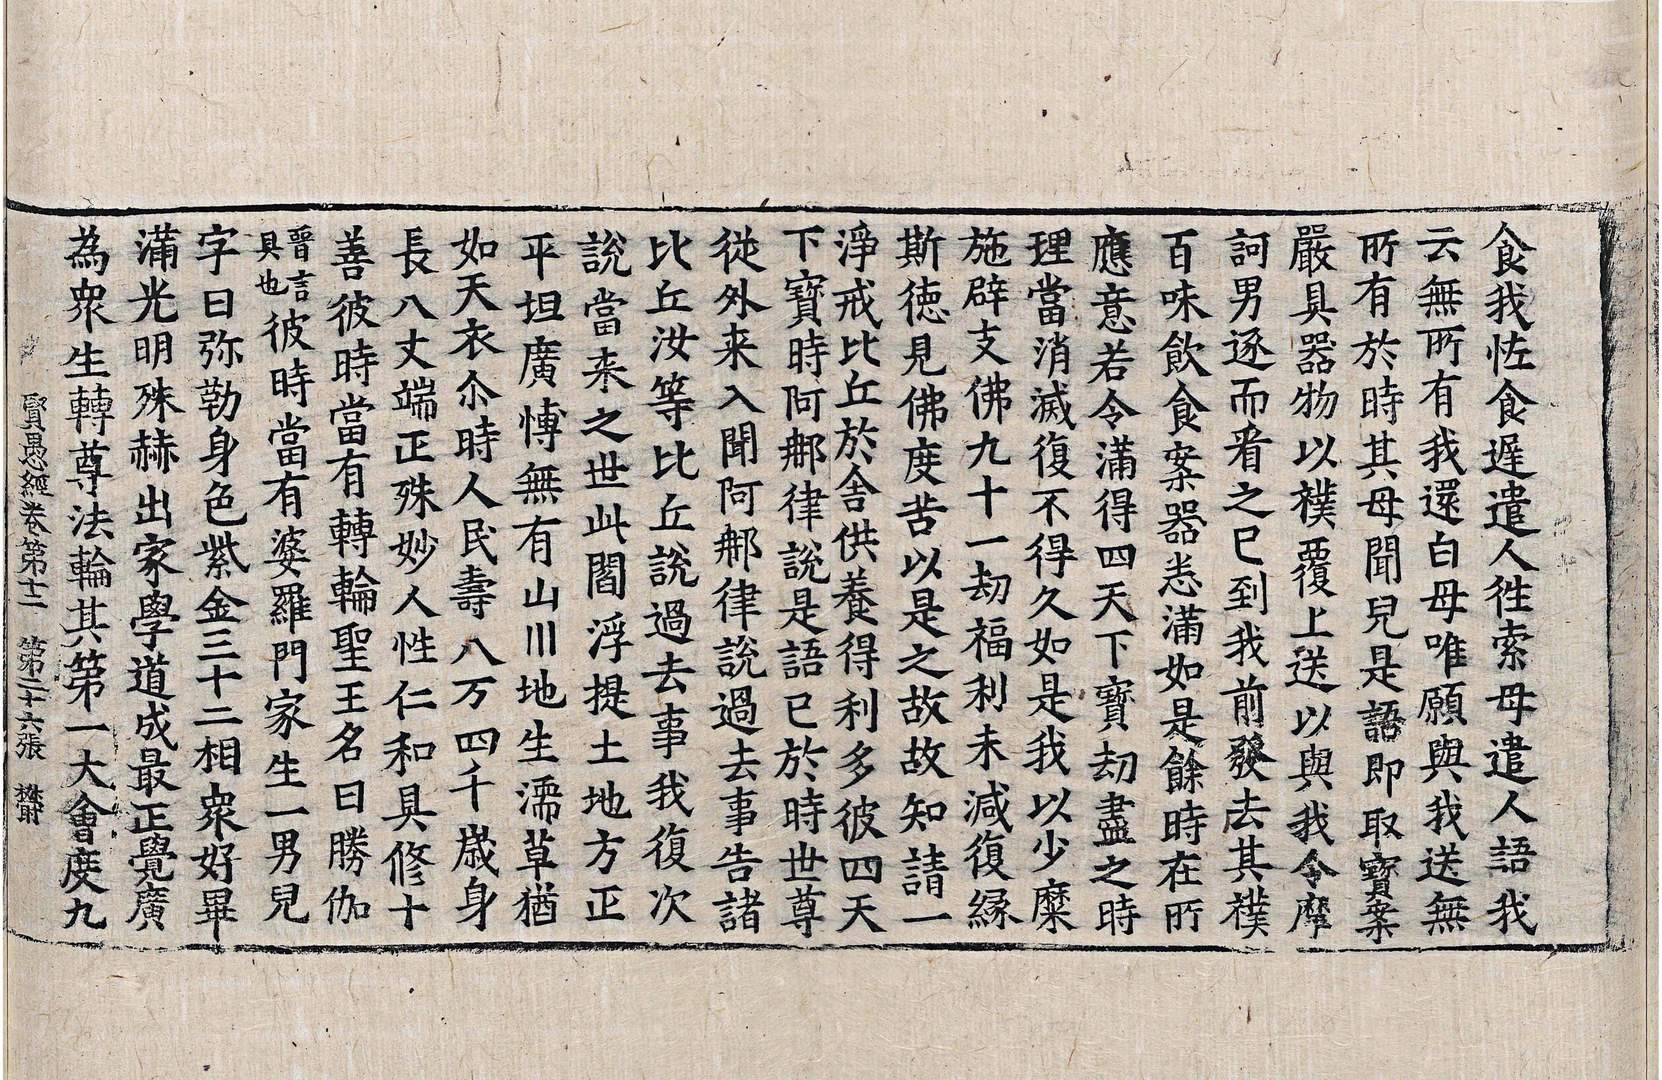 食我恠食遅遣人徃索母遣人語我
云無所有我還白母唯願與我送無
所有於時其母聞兒是語即取寶案
嚴具器物以襆覆上送以與我令摩
訶男逐而看之已到我前發去其襆
百味飲食案器悉滿如是餘時在所
應意若令滿得四天下寶劫盡之時
理當消滅復不得久如是我以少糜
施辟支佛九十一劫福利未減復緣
斯德見佛度苦以是之故故知請一
淨戒比丘於舍供養得利多彼四天
下寶時阿那律說是語已於時世尊
從外来入聞阿那律說過去事告諸
比丘汝等比丘說過去事我復次
說當来之世此閻浮提土地方正
平坦廣博無有山川地生濡草猶
如天衣尒時人民壽八万四千歲身
長八丈端正殊妙人性仁和具修十
善彼時當有轉輪聖王名曰勝伽
晉言具也彼時當有婆羅門家生一男兒
字曰弥勒身色紫金三十二相衆好畢
滿光明殊赫出家學道成最正覺廣
為衆生轉尊法輪其第一大會度九
賢愚經卷第十二 第二十六張 欝